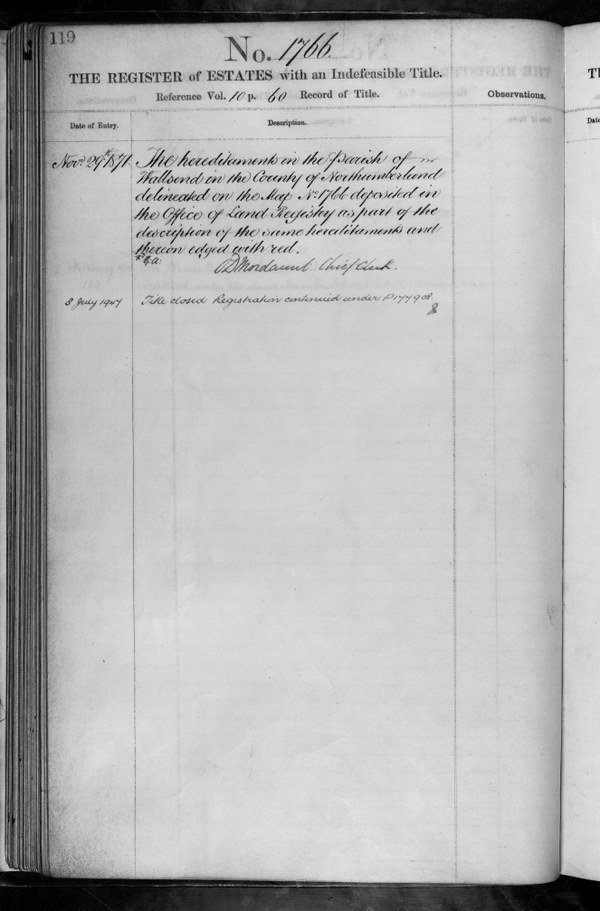 119
No. 1766.
THE REGISTER of ESTATES with an Indefeasible Title.
Reference Vol. 10 p. 60 Record of Title.
Observations.
Date of Entry.
Description.
Novr. 29th 1871.
The hereditaments in the Parish of
Wallsend in the County of Northumberland
delineated on the Map No. 1766 deposited in
the Office of Land Registry as part of the
description of the same hereditaments and
thereon edged with red.
Mordaunt Chief Clerk.
8 July 1947
Title closed Registration continued under P177908